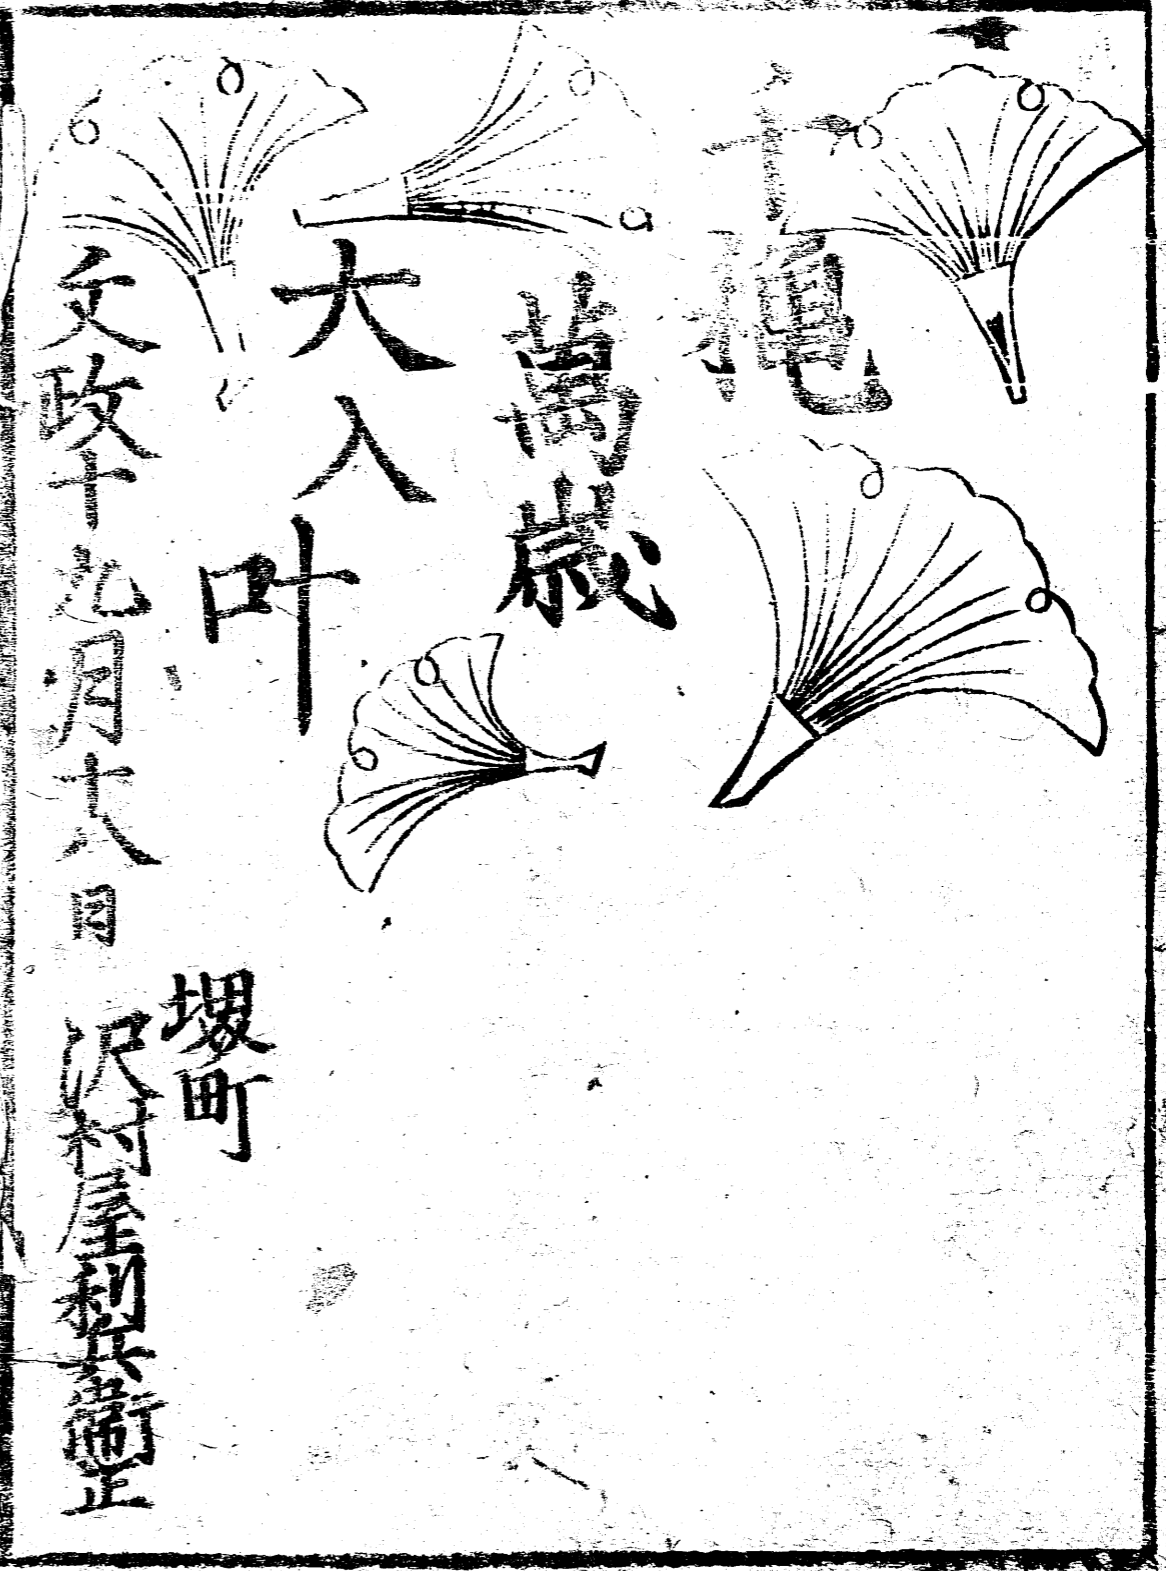 千穐
萬歳
大入
叶
文政十九月十八日
堺町
沢村屋利兵衛正